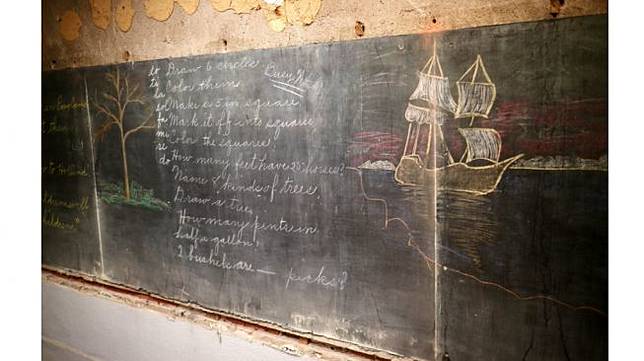 Draw 6 circles. Busy
Color them
la
sol Make a 5 in square
fa Mark it off into squares
mi Color the squares.
re
do How many feet have 25 horses?
Name kinds of trees.
Draw a tree.
How many pints in
half a gallon?
2 bushels are — pecks?
to Holland